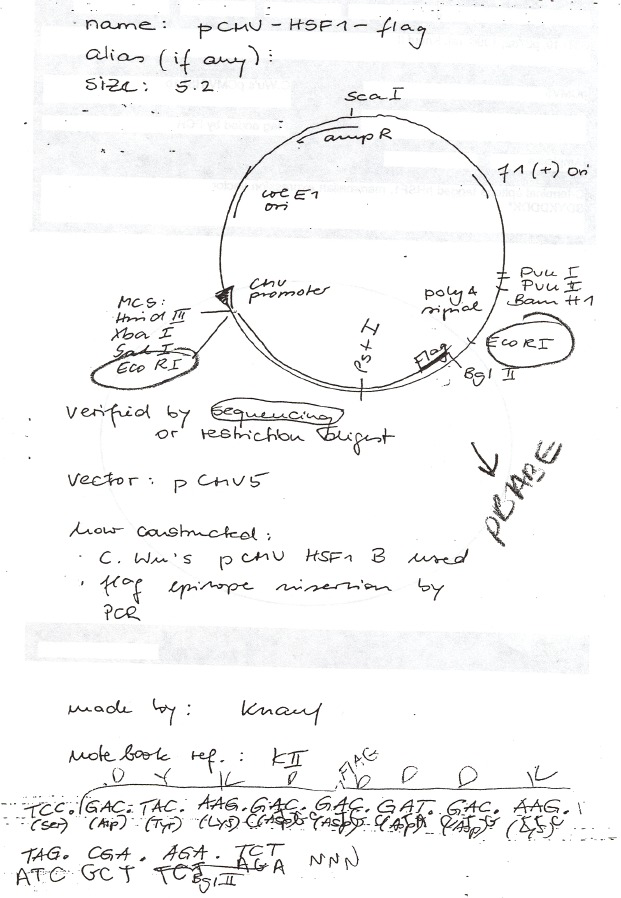 name: pCMV-HSF1-flag
alias (if any):
size: 5.2
Sca I
ampR
f1 (+) Ori
col E1
ori
CMV
promoter
Pvu I
Pvu II
Bam H1
poly A
signal
MCS:
Hind III
Xba I
Sal I
Eco RI
Pst I
Flag
Eco RI
Bgl II
verified by sequencing
or restriction digest
vector: pCMV5
PBABE
how constructed:
· C. Wu's pCMV HSF1 B used
· flag epitope insertion by
PCR
made by: Knauf
Notebook ref.: KII
FLAG
D Y K D D D D K
TCC. GAC. TAC. AAG. GAC. GAC. GAT. GAC. AAG.
(Ser) (Asp) (Tyr) (Lys) (Asp) (Asp) (Asp) (Asp) (Lys)
TAG. CGA. AGA. TCT NNN
ATC GCT TCT AGA
Bgl II